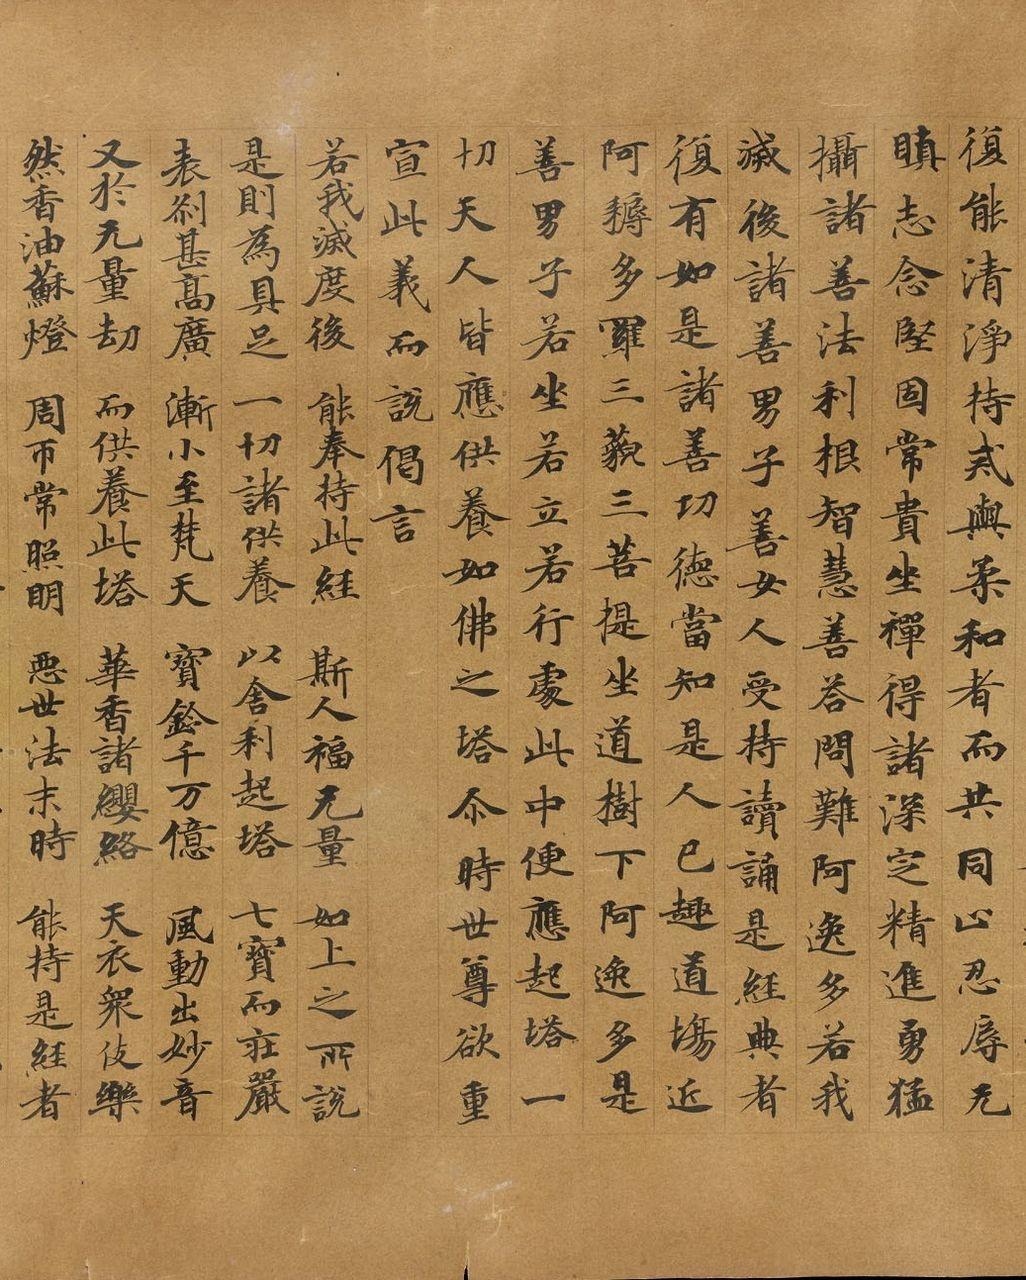 復能清淨持戒與柔和者而共同止忍辱无
瞋志念堅固常貴坐禪得諸深定精進勇猛
攝諸善法利根智慧善荅問難阿逸多若我
滅後諸善男子善女人受持讀誦是經典者
復有如是諸善功德當知是人已趣道場近
阿耨多羅三藐三菩提坐道樹下阿逸多是
善男子若坐若立若行處此中便應起塔一
切天人皆應供養如佛之塔尒時世尊欲重
宣此義而說偈言
若我滅度後 能奉持此經 斯人福无量 如上之所說
是則為具足 一切諸供養 以舍利起塔 七寶而莊嚴
表剎甚高廣 漸小至梵天 寶鈴千万億 風動出妙音
又於无量劫 而供養此塔 華香諸纓絡 天衣眾伎樂
然香油蘇燈 周帀常照明 惡世法末時 能持是經者